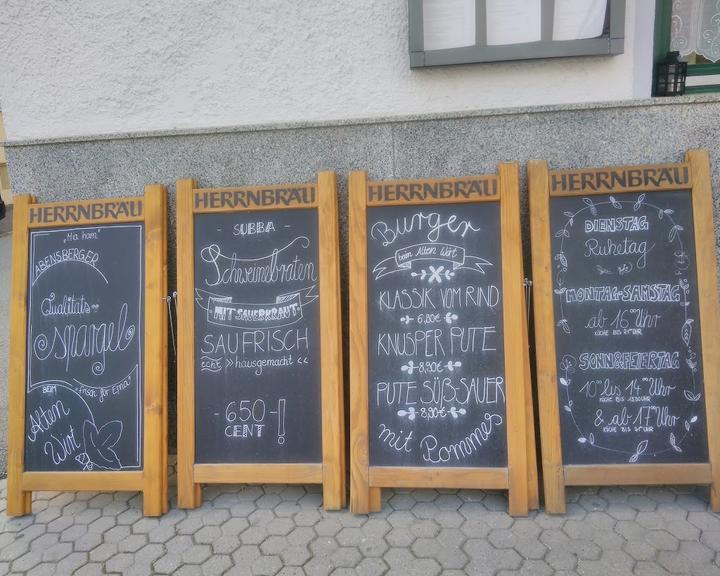 HERRNBRÄU
„Mia ham"
ABENSBERGER
Qualitäts
spargel
BEIM
„Frisch für Eina"
Alten
Wirt
HERRNBRÄU
- SUBBA -
Schweinebraten
MIT SAUERKRAUT
SAUFRISCH
ECHT »hausgemacht«
- 650 -
CENT !
HERRNBRÄU
Burger
beim Alten Wirt
KLASSIK VOM RIND
6,80€
KNUSPER PUTE
8,90€
PUTE SÜßSAUER
8,90€
mit Pommes
HERRNBRÄU
DIENSTAG
Ruhetag
MONTAG-SAMSTAG
ab 16 Uhr
KÜCHE BIS 21 UHR
SONN&FEIERTAG
10 bis 14 Uhr
KÜCHE BIS 13:30 UHR
& ab 17 Uhr
KÜCHE BIS 21 UHR